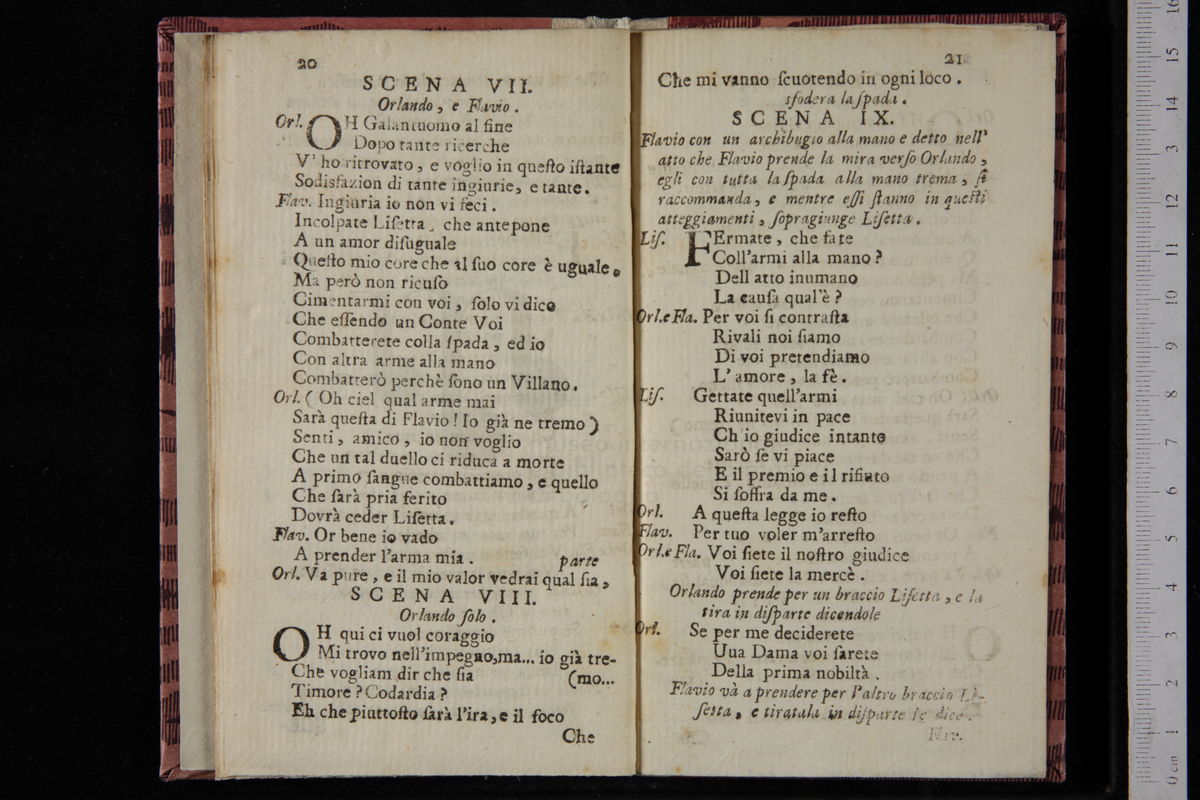 20
SCENA VII.
Orlando, e Flavio.
Orl. OH Galantuomo al fine
Dopo tante ricerche
V' ho ritrovato, e voglio in queſto iſtante
Sodisfazion di tante ingiurie, e tante.
Flav. Ingiuria io non vi feci.
Incolpate Liſetta, che antepone
A un amor diſuguale
Queſto mio core che al ſuo core è uguale.
Ma però non ricuſo
Cimentarmi con voi, ſolo vi dico
Che eſſendo un Conte Voi
Combatterete colla ſpada, ed io
Con altra arme alla mano
Combatterò perchè ſono un Villano.
Orl. (Oh ciel qual arme mai
Sarà queſta di Flavio! Io già ne tremo)
Senti, amico, io non voglio
Che un tal duello ci riduca a morte
A primo ſangue combattiamo, e quello
Che ſarà pria ferito
Dovrà ceder Liſetta.
Flav. Or bene io vado
A prender l'arma mia. parte
Orl. Va pure, e il mio valor vedrai qual ſia,
SCENA VIII.
Orlando ſolo.
OH qui ci vuol coraggio
Mi trovo nell'impegno, ma... io già tre-
Che vogliam dir che ſia (mo...
Timore? Codardia?
Eh che piuttoſto ſarà l'ira, e il foco
Che
21
Che mi vanno ſcuotendo in ogni loco.
sfodera la ſpada.
SCENA IX.
Flavio con un archibugio alla mano e detto nell'
atto che Flavio prende la mira verſo Orlando,
egli con tutta la ſpada alla mano trema, ſi
raccommanda, e mentre eſſi ſtanno in queſti
atteggiamenti, ſopragiunge Liſetta.
Liſ. FErmate, che fate
Coll'armi alla mano?
Dell atto inumano
La cauſa qual'è?
Orl.e Fla. Per voi ſi contraſta
Rivali noi ſiamo
Di voi pretendiamo
L' amore, la fè.
Liſ. Gettate quell'armi
Riunitevi in pace
Ch io giudice intanto
Sarò ſe vi piace
E il premio e il rifiuto
Si ſoffra da me.
Orl. A queſta legge io reſto
Flav. Per tuo voler m'arreſto
Orl.e Fla. Voi ſiete il noſtro giudice
Voi ſiete la mercè.
Orlando prende per un braccio Liſetta, e la
tira in diſparte dicendole
Orl. Se per me deciderete
Uua Dama voi ſarete
Della prima nobiltà.
Flavio và a prendere per l'altro braccio Li-
ſetta, e tiratala in diſparte le dice.
Flav.